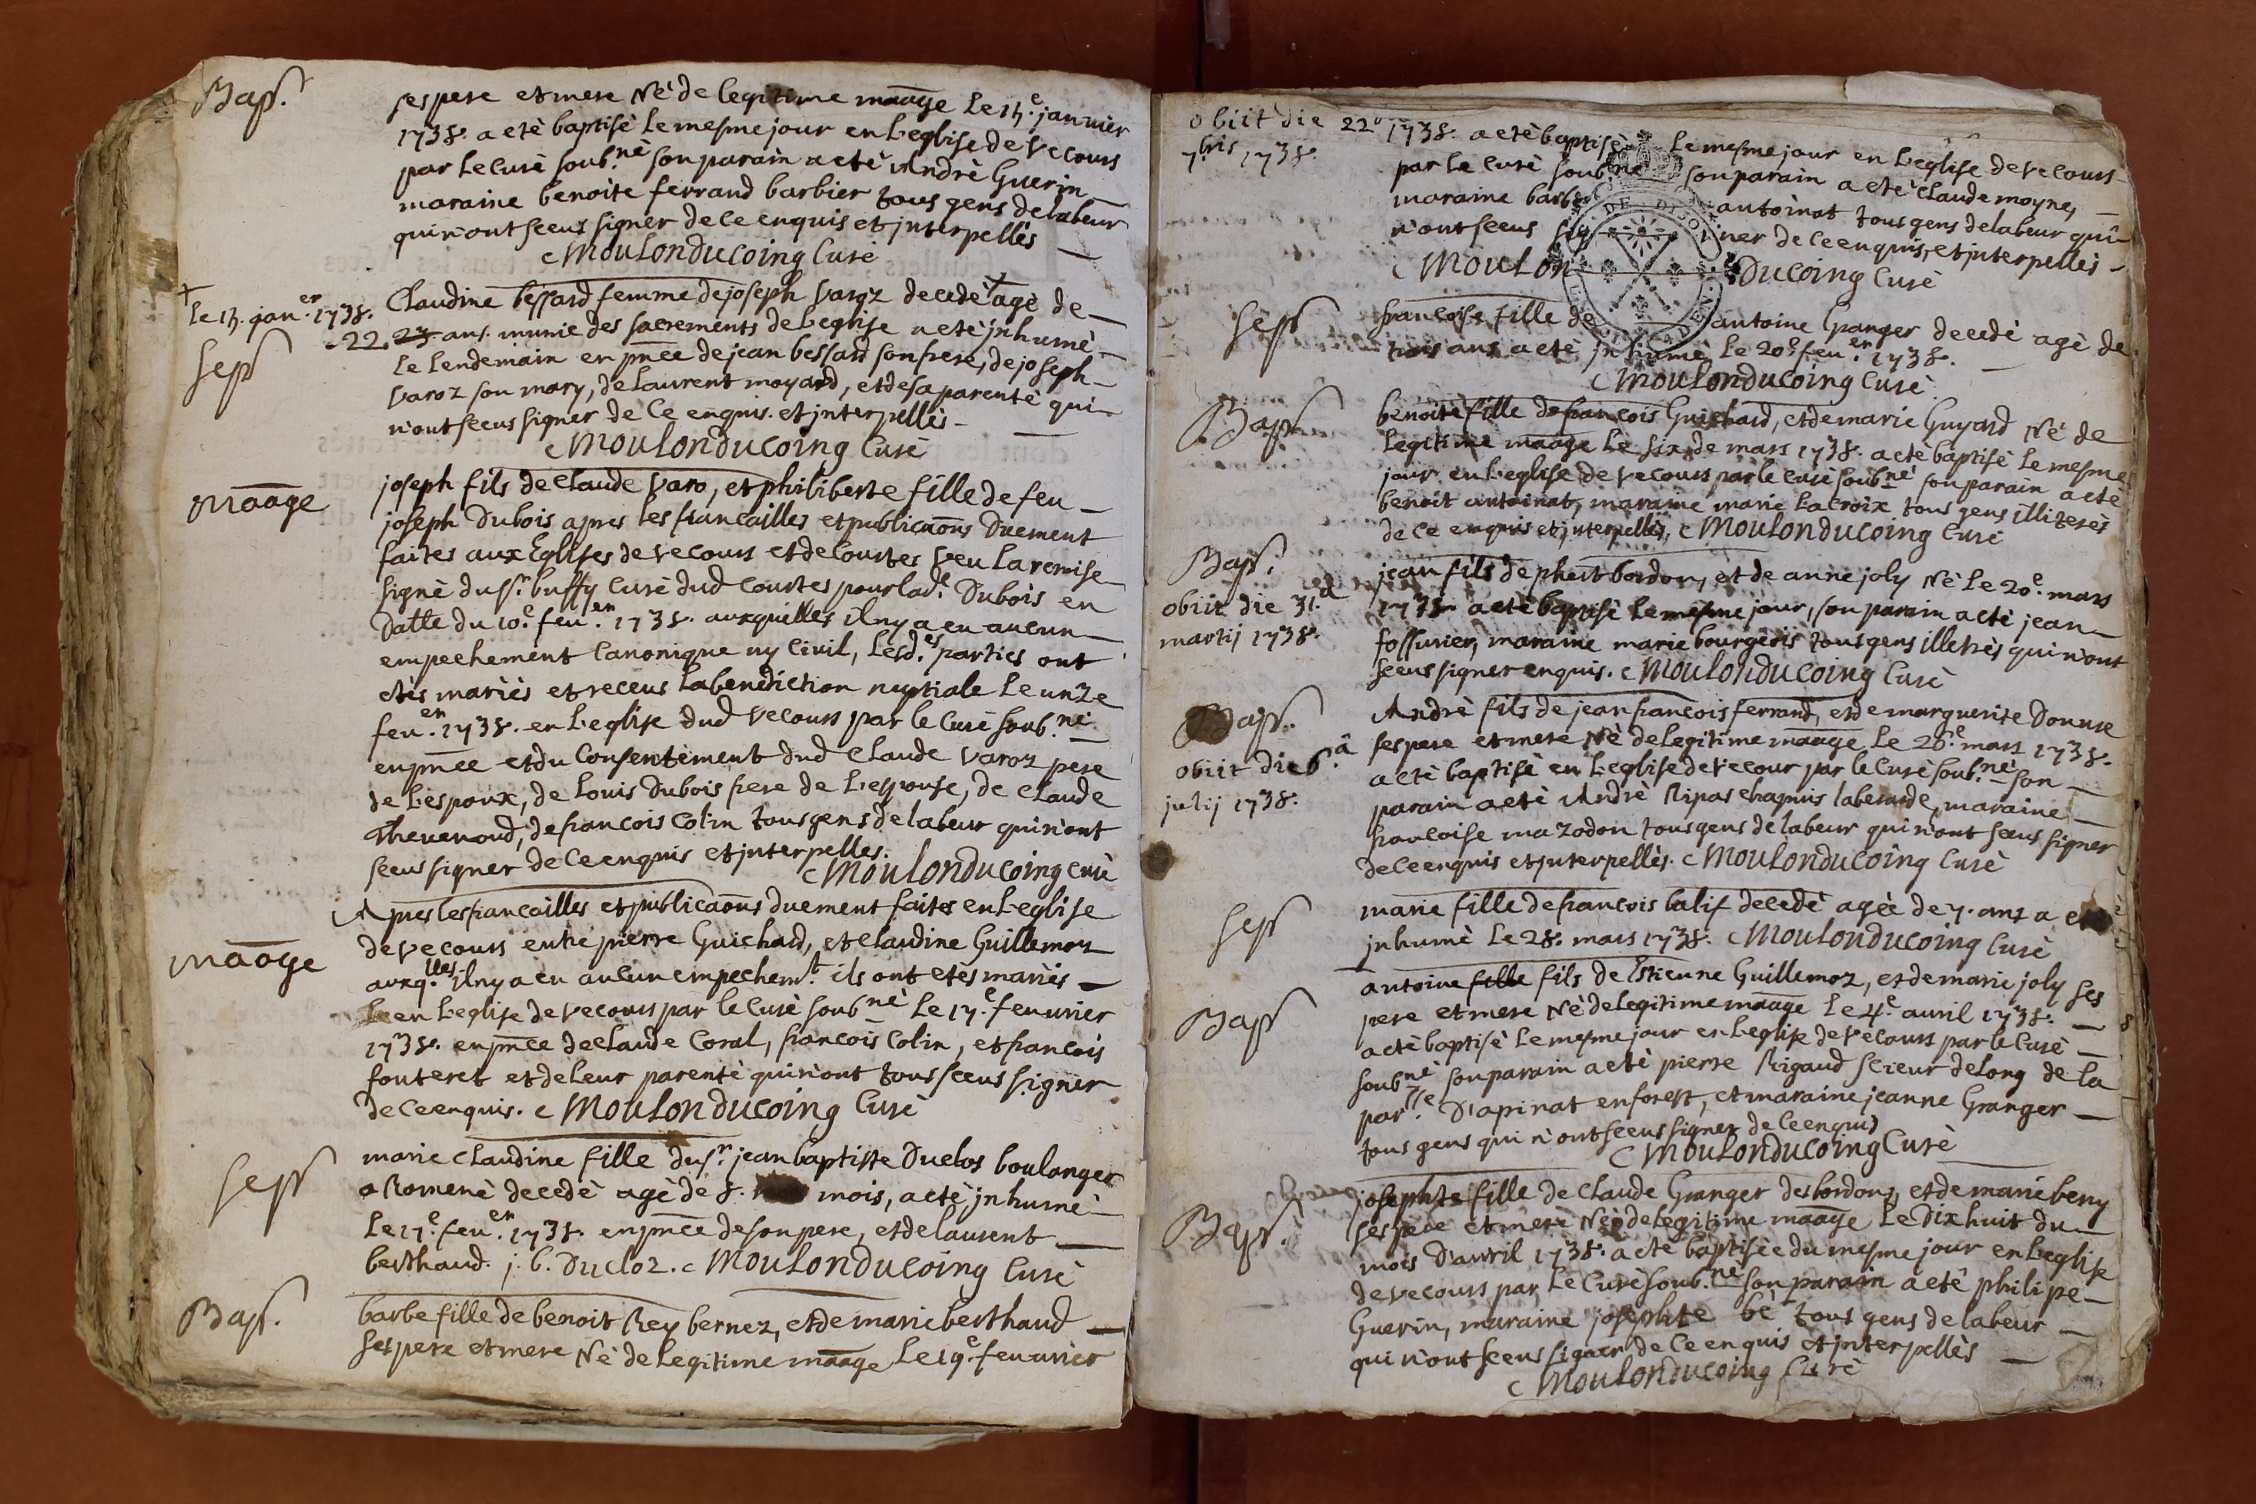 Bap.
ses pere et mere Né de legitime maage Le 15.e janvier
1738. a eté baptisé Le mesme jour en L'eglise de vecours
par Le Curé soub.né son parain a eté André Guerin
maraine benoite ferrand barbier tous gens de labeur
qui n'ont sceus signer de Ce enquis et jnterpellés
Moulonducoing Curé
Le 15. jan.er 1738.
Sep
Claudine bessard femme de joseph varoz decedé agé de
22. 23. ans. munie des sacrements de L'eglise a eté jnhumé
Le Lendemain en pñce de jean bessard son frere, de joseph
varoz son mary, de Laurent moyard, et de sa parenté qui
n'ont sceus signer de Ce enquis. et jnterpellés
Moulonducoing Curé
maage
joseph fils de Claude varo, et philiberte fille de feu
joseph Dubois apres Les fiancailles et publicaõns Duement
faites aux Eglises de vecours et de Courtes veu La remise
signé du s.r buffy Curé dud Courtes pour lad.e Dubois en
Datte du 10.e feu.er 1738. auxquelles il ny a eu aucun
empechement Canonique ny Civil, Lesd.es parties ont
etés mariés et receus La benediction nuptiale Le unze
feu.er 1738. en L'eglise dud vecours par le Curé soub.né
en pñce et du Consentement dud Claude varoz pere
de L'espoux, de Louis Dubois frere de L'espouse, de Claude
Thevenoud, de francois Colin tous gens de labeur qui n'ont
sceus signer de Ce enquis et jnterpelles.
Moulonducoing Curé
maage
Apres les fiancailles et publicaõns duement faites en L'eglise
de vecours entre pierre Guichard, et Claudine Guillemoz
auxq.lles il ny a eu aucun empechem.t ils ont etés mariés
en L'eglise de vecours par le Curé soub.né Le 17.e feuurier
1738. en pñce de Claude Coral, francois Colin, et francois
fouteret et de Leur parenté qui n'ont tous sceus signer
de Ce enquis. Moulonducoing Curé
Sep
marie Claudine fille du s.r jean baptiste Duclos boulanger
a Romené decedé agé de 8. mois, a eté jnhumé
Le 17.e feu.er 1738. en pñce de son pere, et de laurent
berthaud. j. b. Ducloz. Moulonducoing Curé
Bap.
barbe fille de benoit Rey bernez, et de marie berthaud
ses pere et mere Né de Legitime maage Le 19.e feuurier
obiit die 22a
7bris 1738.
1738. a eté baptisé Le mesme jour en L'eglise de vecours
par Le Curé soub.né son parain a eté Claude moyne,
maraine barbe antoinat tous gens de labeur qui
n'ont sceus signer de Ce enquis, et jnterpellés
Moulonducoing Curé
DE DIJON
Sep
francoise fille de antoine Granger decedé agé de
trois ans a eté jnhumé Le 20.e feu.er 1738.
Moulonducoing Curé
Bap
benoite fille de francois Guichard, et de marie Guyard Né de
Legitime maage Le six de mars 1738. a eté baptisé Le mesme
jour en L'eglise de vecours par le Curé soub.né son parain a eté
benoit antoinat, maraine marie Lacroix tous gens illiterés
de Ce enquis et jnterpellés, Moulonducoing Curé
Bap.
obiit die 31.a
martij 1738.
jean fils de phert bordon, et de anne joly Né Le 20.e mars
1738. a eté baptisé Le mesme jour, son parain a eté jean
fossurier, maraine marie bourgeois tous gens illetrés qui n'ont
sceus signer enquis. Moulonducoing Curé
Bap.
obiit die 6.a
julij 1738.
André fils de jean francois ferrand, et de marguerite Donure
ses pere et mere Né de Legitime maage Le 26.e mars 1738.
a eté baptisé en L'eglise de vecour par le Curé soub.né son
parain a eté André Ripas laberarde, maraine
francoise mazodon tous gens de labeur qui n'ont sceus signer
de Ce enquis et jnterpellés. Moulonducoing Curé
Sep
marie fille de francois balif decedé agée de 7. ans a eté
jnhumé Le 28. mars 1738. Moulonducoing Curé
Bap
antoine fille fils de Estienne Guillemoz, et de marie joly ses
pere et mere Né de Legitime maage Le 4.e avril 1738.
a eté baptisé Le mesme jour en L'eglise de vecours par le Curé
soub.né son parain a eté pierre Rigaud scieur de Long de la
par.sse D'apinat en forest, et maraine jeanne Granger
tous gens qui n'ont sceus signer de Ce enquis
Moulonducoing Curé
Bap.
josephte fille de Claude Granger des bordons, et de marie beny
ses pere et mere Née de Legitime maage Le Dix huit du
mois D'avril 1738. a eté baptisée du mesme jour en L'eglise
de vecours par Le Curé soub.né son parain a eté philipe
Guerin, maraine josephte bé tous gens de labeur
qui n'ont sceus signer de Ce enquis et jnterpellés
Moulonducoing Curé